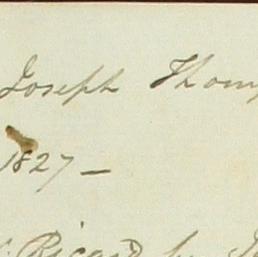 Joseph Thomp
1827 -
Ricard by